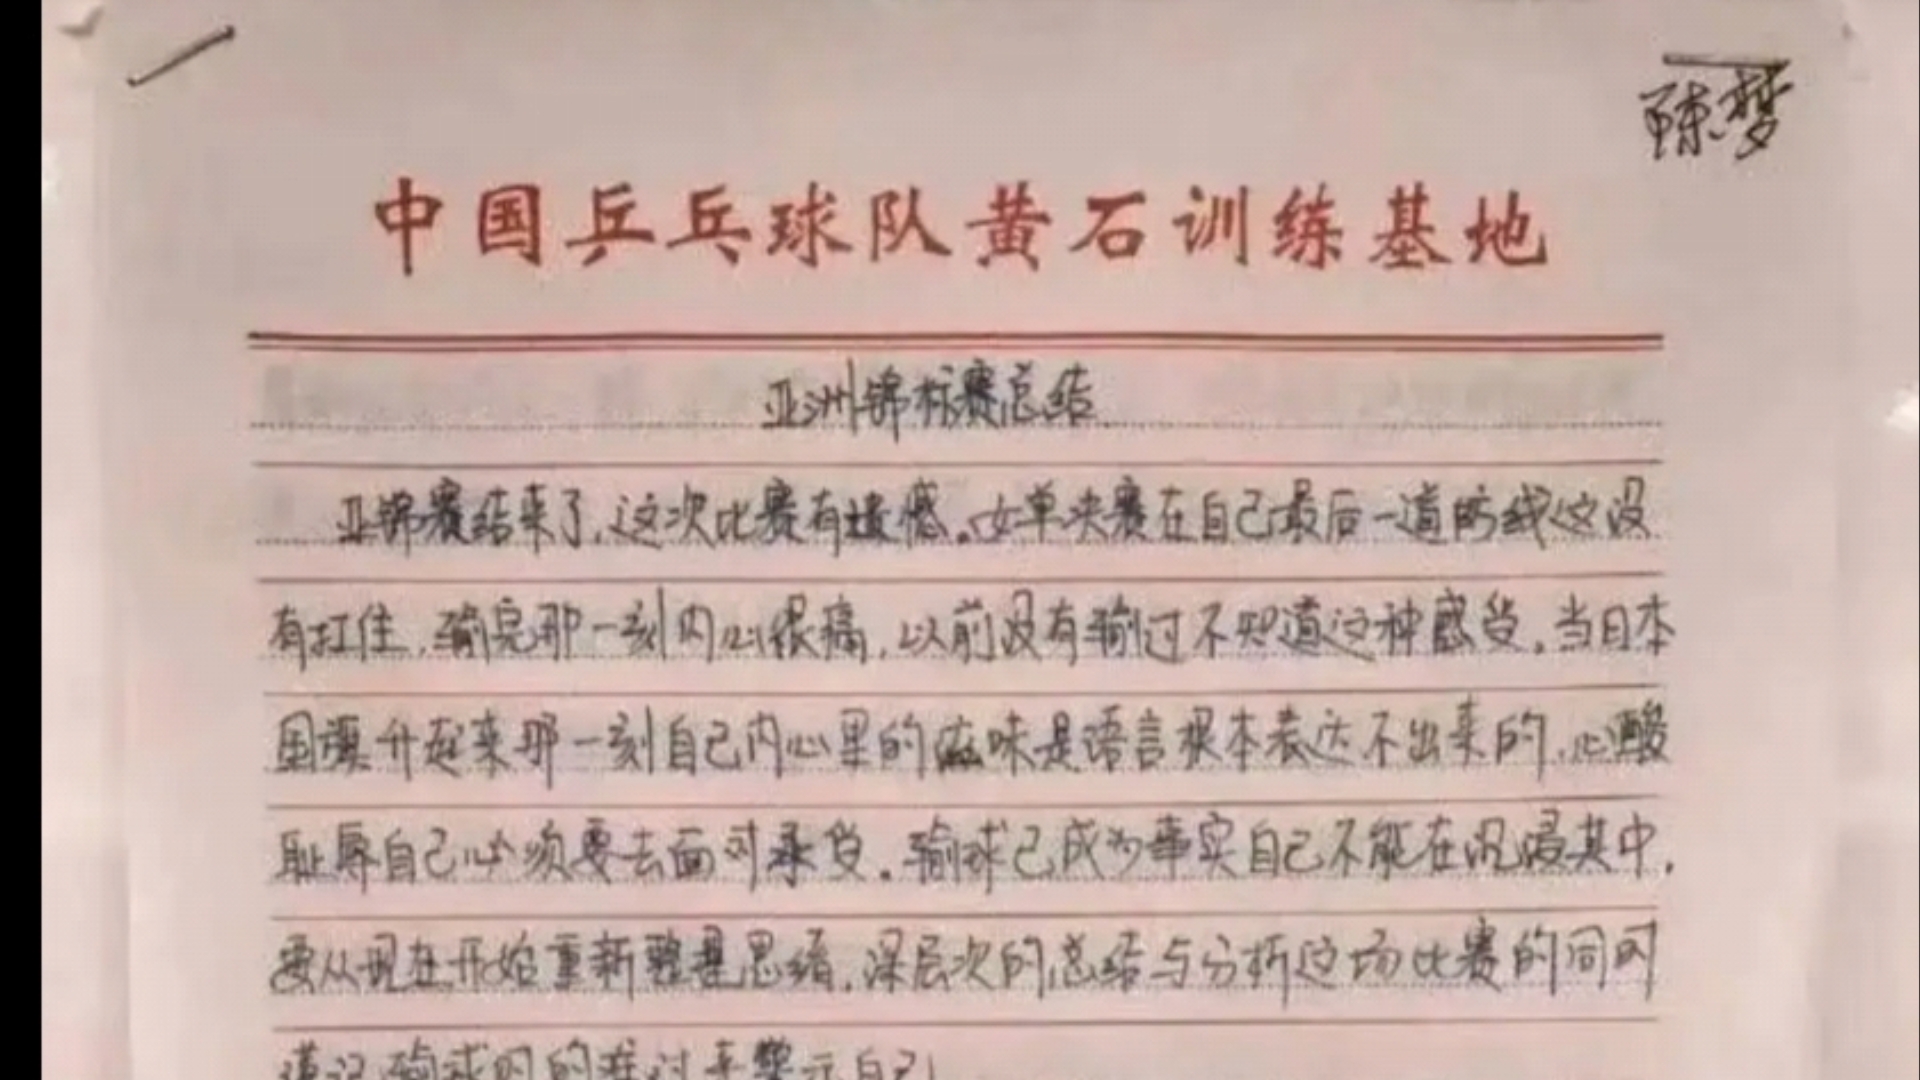 陈梦
中国乒乓球队黄石训练基地
亚洲锦标赛总结
亚锦赛结来了,这次比赛有遗憾。女单决赛在自己最后一道防线这没
有扛住,输完那一刻内心很痛,以前没有输过不知道这种感受。当日本
国旗升起来那一刻自己内心里的滋味是语言根本表达不出来的,心酸
耻辱自己必须要去面对承受。输球已成为事实自己不能在沉浸其中,
要从现在开始重新整理思绪,深层次的总结与分析这场比赛的同时
谨记输球时的难过来警示自己